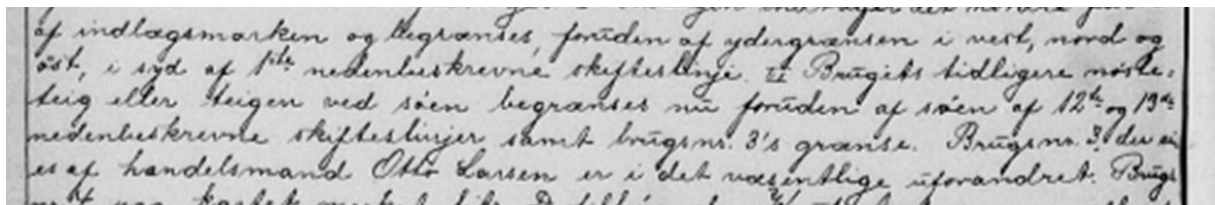 af indlægsmarken og begrænses, foruden af ydergrænsen i vest, nord og
øst, i syd af 1ste nedenbeskrevne skifteslinje. II Brugets tidligere nøste-
teig eller teigen ved søen begrænses nu foruden af søen af 12te og 13de
nedenbeskrevne skifteslinjer samt brugsnr. 3's grænse. Brugsnr. 3, der ei-
es af handelsmand Otto Larsen er i det væsentlige uforandret. Brugs